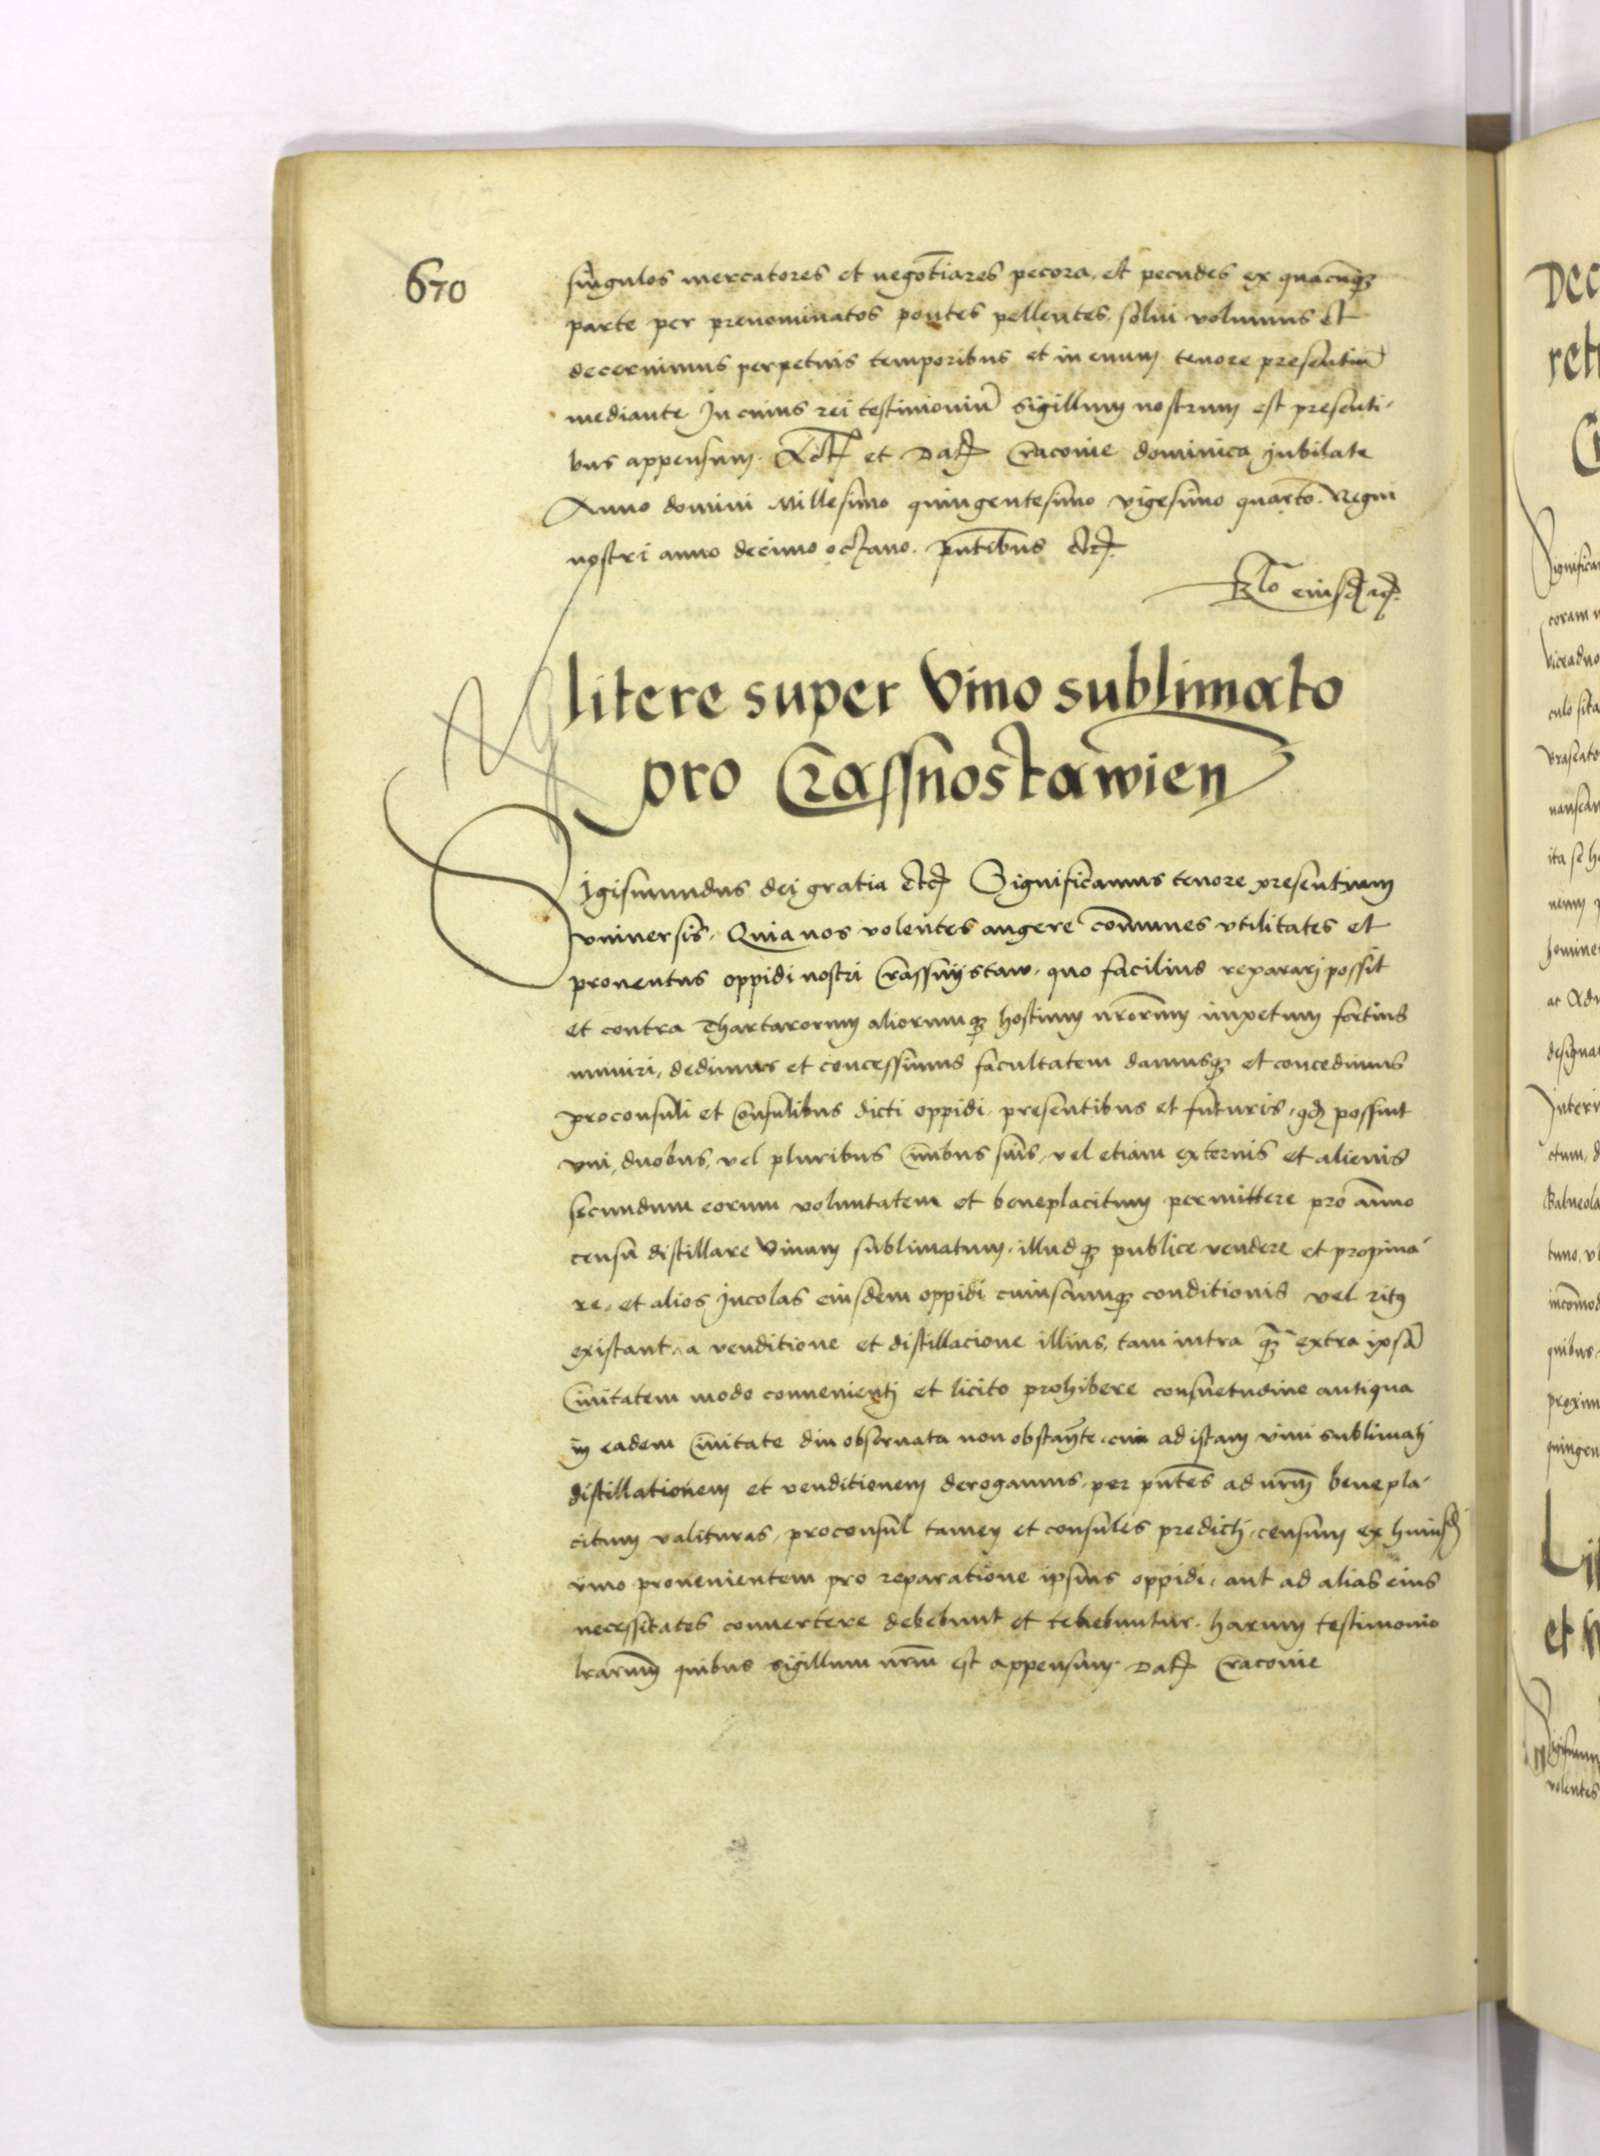 670
singulos mercatores et negotiares pecora et pecudes ex quacu̅q3
parte per prenominatos pontes pellentes, solui volumus et
decernimus perpetuis temporibus et in euum tenore presentiu̅
mediante In cuius rei testimoniu̅ sigillum nostrum est presenti-
bus appensum. Act et Dat Cracouie dominica Jubilate
Anno domini Millesimo quingentesimo vigesimo quarto. Regni
nostri anno decimo octauo. pn̅tibus etc.
R̅lo eiusd
litere super Vino sublimato
pro Crassnostawien
Sigismundus dei gratia etc Significamus tenore presentium
vniuersis. Quia nos volentes augere co̅munes vtilitates et
prouentus oppidi nostri Crassnijstaw. quo facilius reparari possit
et contra Thartarorum aliorumq3 hostium nr̅orum impetum fortius
muniri, dedimus et concessimus facultatem damusq3 et concedimus
proconsuli et Consulibus dicti oppidi presentibus et futuris, qd possint
vni, duobus, vel pluribus Ciuibus suis, vel etiam externis et alienis
secundum eorum voluntatem et beneplacitum permittere pro annuo
censu distillare Vinum sublimatum, illudq3 publice vendere et propina-
re, et alios Incolas eiusdem oppidi cuiuscumq3 conditionis vel ritus
existant, a venditione et distillacione illius, tam intra q3 extra ipsa̅
Ciuitatem modo conuenienti et licito prohibere consuetudine antiqua
in eadem Ciuitate diu obseruata non obstante, cui ad istam vini sublimati
distillationem et venditionem derogamus, per pn̅tes ad nr̅m benepla-
citum valituras, proconsul tamen et consules predicti, censum ex huiusd
vino prouenientem pro reparatione ipsius oppidi, aut ad alias eius
necessitates conuertere debebunt et tenebuntur. harum testimonio
lr̅arum quibus sigillum nr̅m est appensum. Dat Cracouie